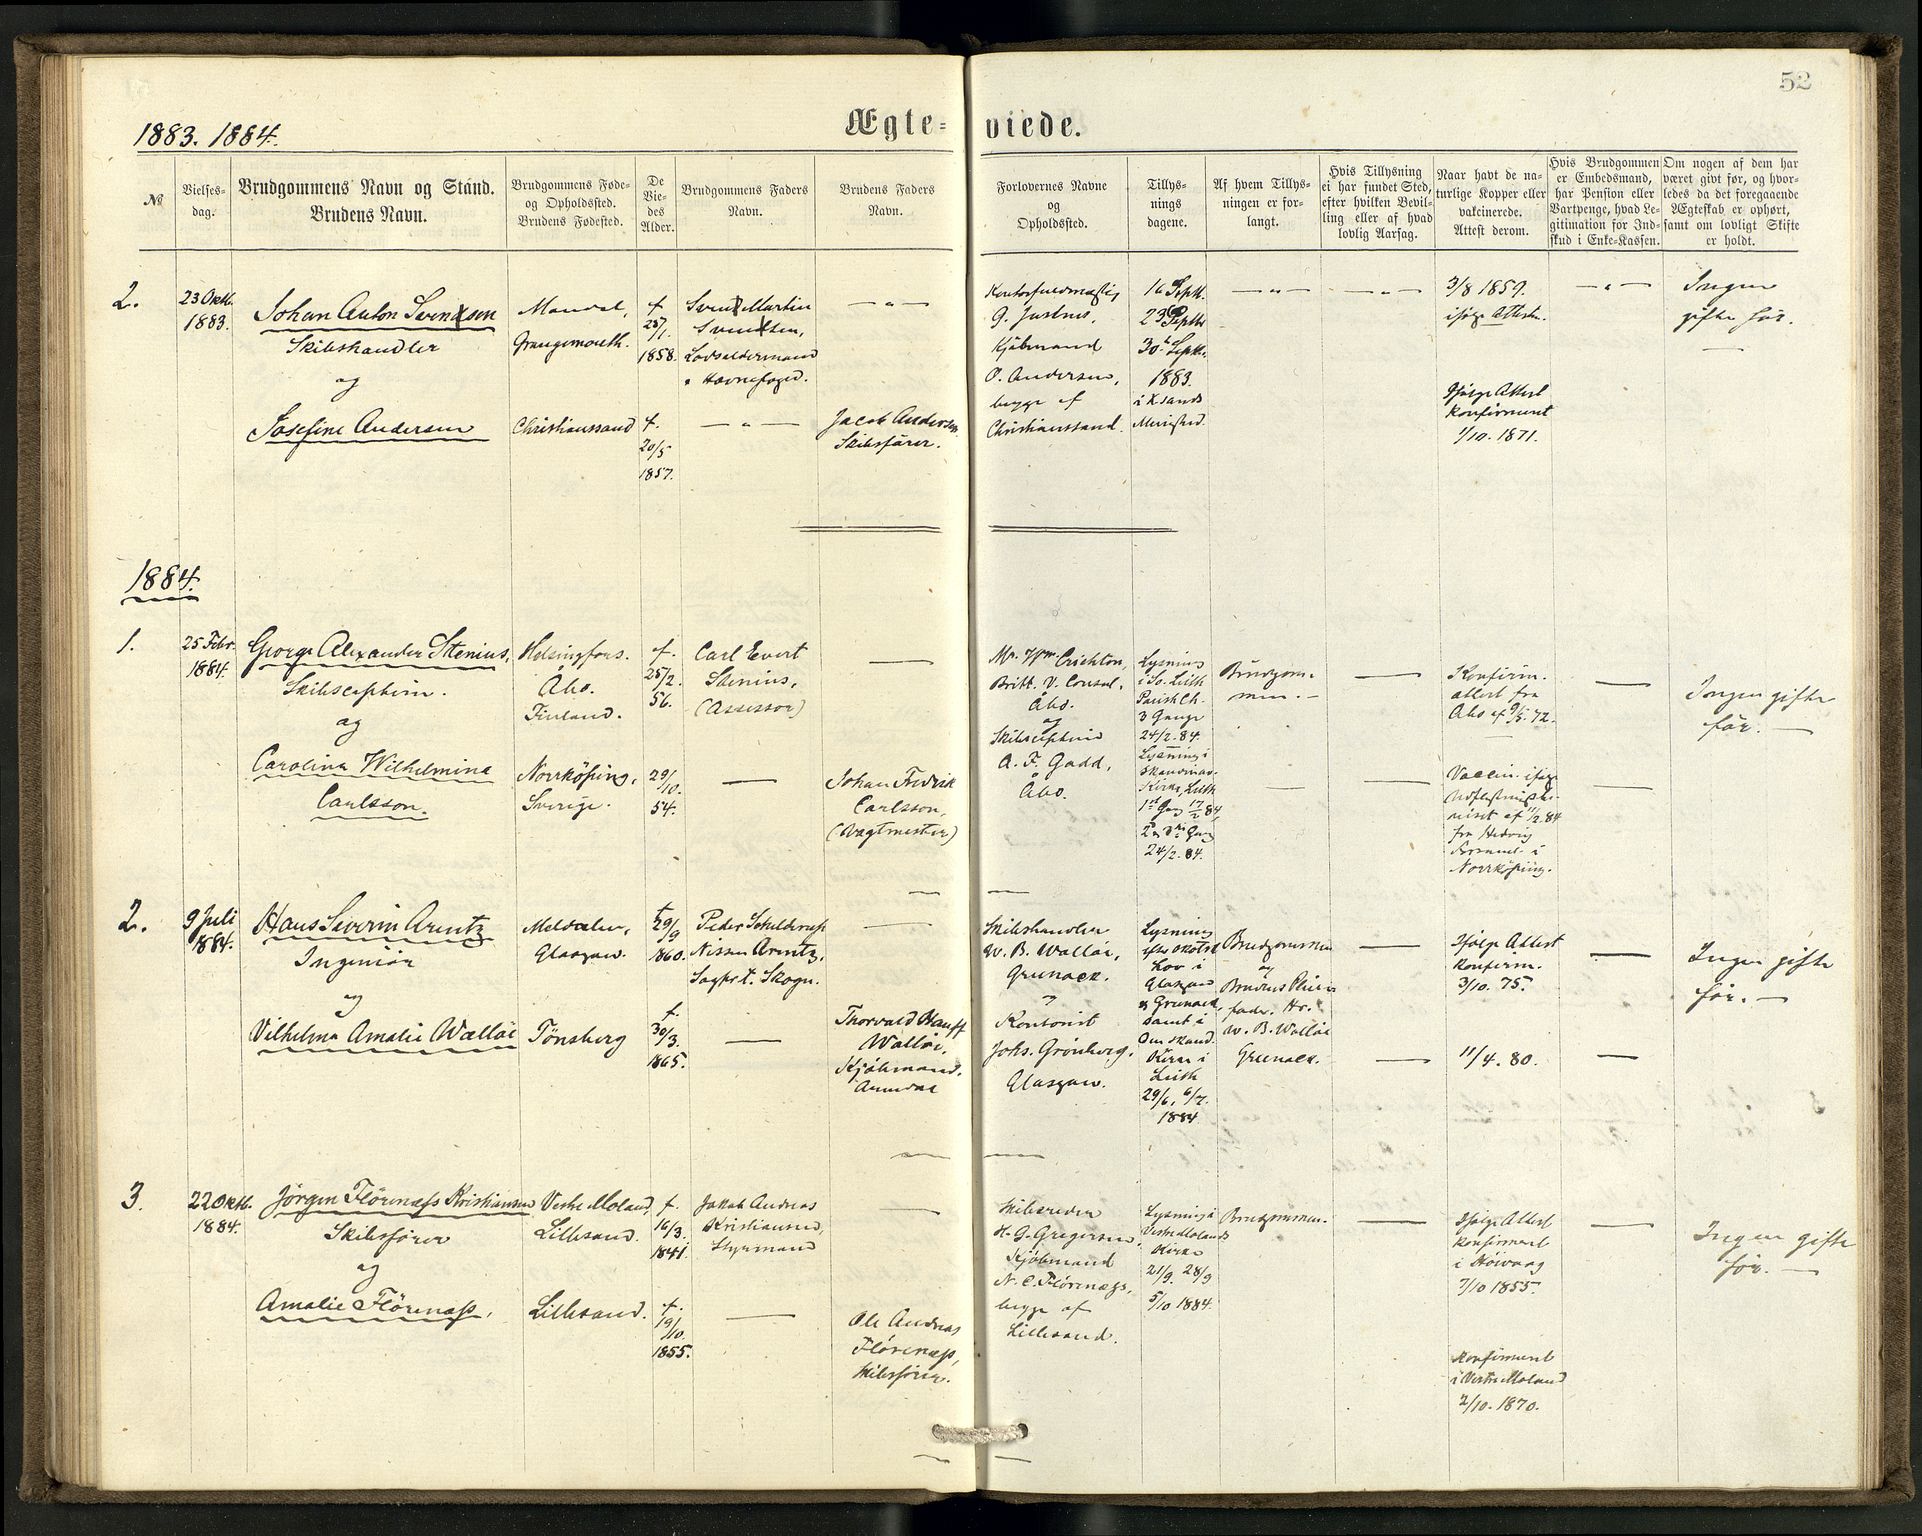 52
1883. 1884.
Ægte- viede.
№
Vielses-
dag.
Brudgommens Navn og Stand.
Brudens Navn.
Brudgommens Føde-
og Opholdssted.
Brudens Fødested.
De
Vie-
des
Alder.
Brudgommens Faders
Navn.
Brudens Faders
Navn.
Forlovernes Navne
og
Opholdssted.
Tillys-
nings
dagene.
Af hvem Tillys-
ningen er for-
langt.
Hvis Tillysning
ei har fundet Sted,
efter hvilken Bevil-
ling eller af hvad
lovlig Aarsag.
Naar havt de na-
turlige Kopper eller
vakcinerede.
Attest derom.
Hvis Brudgommen
er Embedsmand,
har Pension eller
Vartpenge, hvad Le-
gitimation for Ind-
skud i Enke-Kassen.
Om nogen af dem har
været givt før, og hvor-
ledes da det foregaaende
Ægteskab er ophørt,
samt om lovligt Skifte
er holdt.
2.
23 Oktb.
1883.
Johan Anton Svendsen
Skibshandler
og
Josefine Andersen
Mandal,
Grangemouth.
Christianssand
f.
25/1.
1858.
f.
20/5
1857.
Svend Martin
Svendsen,
Lodsoldermand
& Havnefoged.
— „ —
— „ —
Jacob Andersen
Skibsfører.
Kontorfuldmægtig
G. Justnes,
Kjøbmand
O. Andersen,
begge af
Christianssand.
16 Septb.
23 Septb
30 Septb.
1883.
i K.sands
Menighed.
— „ —
— „ —
3/8 1859.
ifølge Attester.
Ifølge Attest
konfirmeret
1/10. 1871.
— „ —
Ingen
gifte før.
1884.
1.
25 Febr.
1884.
George Alexander Stenius,
Skibscaptein.
og
Carolina Wilhelmina
Carlsson.
Helsingfors.
Åbo.
Finland.
Norrköping,
Sverige.
f.
25/2.
56.
29/10.
54.
Carl Evert
Stenius,
(Assessor)
Johan Fredrik
Carlsson,
(Vagtmester)
Mr. Wm. Crichton,
Britt. V. Consul,
Åbo.
og
Skibscaptein
A. F. Gadd,
Åbo.
Lysning
i So. Leith
Parish Ch.
3 Gange
24/2. 84.
Lysning i
Skandinav.
Kirke, Leith
1st Gang 17/2 84,
24/2. 84.
Brudgom-
men. –
Konfirm.
attest fra
Åbo af 9/5. 72.
Vaccin. ifølge
fra Hedvig
i
Norrköping.
Ingen gifte
før. —
2.
9 Juli
1884.
Hans Severin Arentz
Ingeniør
og
Vilhelma Amalie Walløe
Meldalen,
Glasgow.
Tönsberg
f.
29/9
1860.
f.
30/3.
1865.
Peder Schilderup
Nissen Arentz,
Sogpr. t. Skogn.
Thorvald Hauff
Walløe,
Kjøbmand.
Skibshandler
W. B. Walløe,
Greenock.
„
Kontorist
Johs. Grönberg,
Glasgow.
Lysning
efter skotsk
Lov i
Glasgow
& Greenock,
samt i
Den skand.
Kirke i
Leith
29/6, 6/7.
1884.
Brudgommen
og
Brudens Pleie-
fader Hr.
W. B. Walløe
Greenock.
Ifølge Attest
konfirm.
3/10. 75.
11/4. 80.
Ingen gifte
før. —
3.
22 Oktb.
1884.
Jørgen Flörenæss Kristiansen
Skibsfører
og
Amalie Flörenæss,
Vestre Moland,
Lillesand.
Lillesand.
f.
16/3.
1841.
f.
19/10.
1855.
Jakob Andreas
Kristiansen,
Styrmand
Ole Andreas
Flörenæss,
Skibsfører.
Skibsreder
H. G. Gregersen,
Kjøbmand
N. C. Flörenæss,
begge af
Lillesand.
Lysning i
Vestre Molands
Kirke
21/9. 28/9
5/10 1884.
Brudgommen.
Ifølge Attest
konfirmeret
i Höivaag
7/10 1855.
konfirmeret
i Vestre Moland
2/10. 1870.
Ingen gifte
før. —